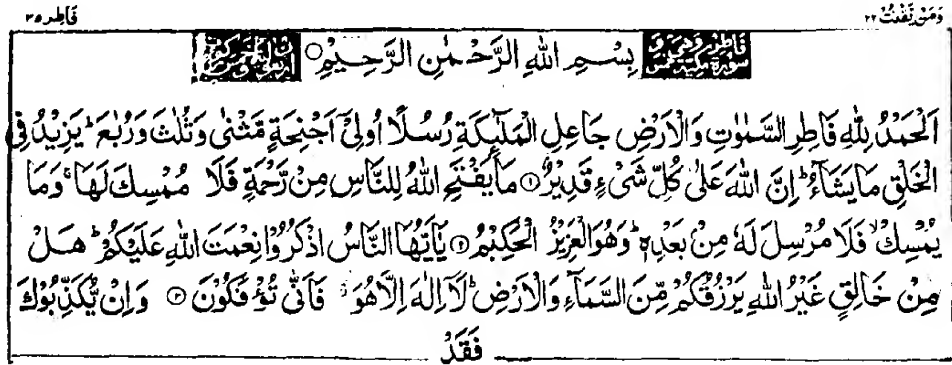 وَمَنْ يَّقْنُتْ ٢٢ فَاطِر ٣٥
بِسْمِ اللهِ الرَّحْمٰنِ الرَّحِيْمِ
اَلْحَمْدُ لِلّٰهِ فَاطِرِ السَّمٰوٰتِ وَالْاَرْضِ جَاعِلِ الْمَلٰٓئِكَةِ رُسُلًا اُولِیْۤ اَجْنِحَةٍ مَّثْنٰى وَثُلٰثَ وَرُبٰعَ ؕ يَزِيْدُ فِی
الْخَلْقِ مَا يَشَآءُ ؕ اِنَّ اللهَ عَلٰى كُلِّ شَیْءٍ قَدِيْرٌ ۝١ مَا يَفْتَحِ اللهُ لِلنَّاسِ مِنْ رَّحْمَةٍ فَلَا مُمْسِكَ لَهَا ۚ وَمَا
يُمْسِكْ ۙ فَلَا مُرْسِلَ لَهٗ مِنْ بَعْدِهٖ ؕ وَهُوَ الْعَزِيْزُ الْحَكِيْمُ ۝٢ يٰۤاَيُّهَا النَّاسُ اذْكُرُوْا نِعْمَتَ اللهِ عَلَيْكُمْ ؕ هَلْ
مِنْ خَالِقٍ غَيْرُ اللهِ يَرْزُقُكُمْ مِّنَ السَّمَآءِ وَالْاَرْضِ ؕ لَاۤ اِلٰهَ اِلَّا هُوَ ۖ فَاَنّٰى تُؤْفَكُوْنَ ۝٣ وَاِنْ يُّكَذِّبُوْكَ
فَقَدْ